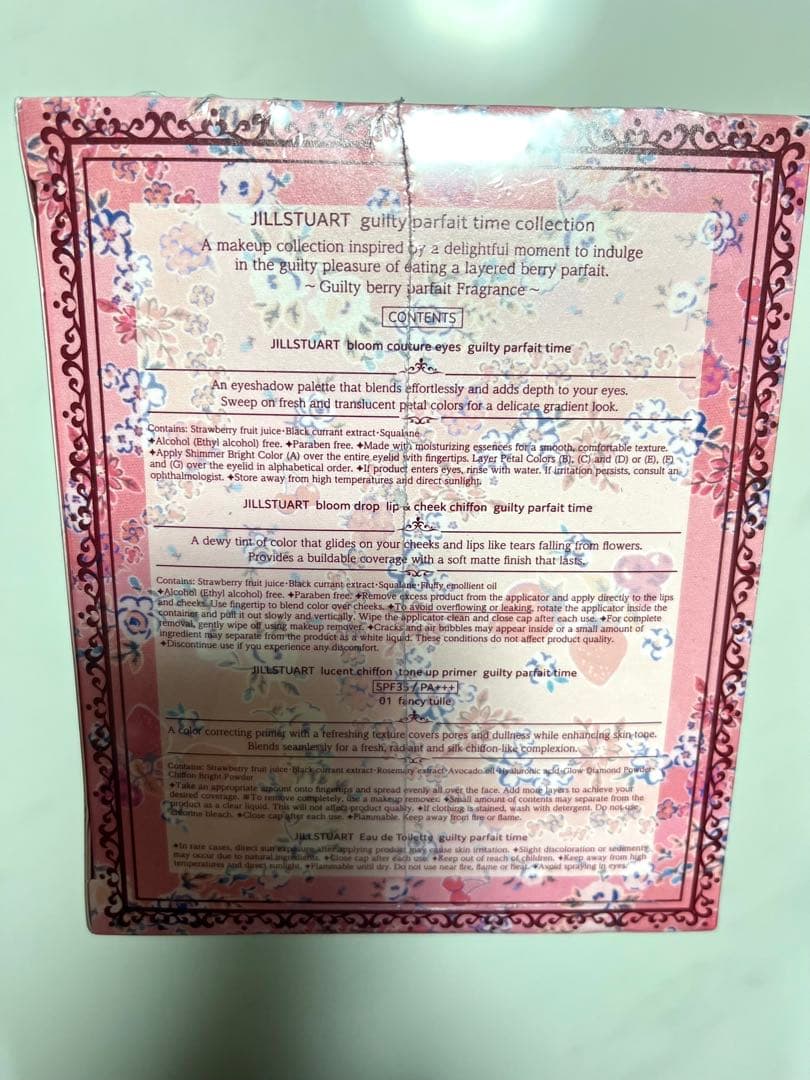 JILLSTUART guilty parfait time collection
A makeup collection inspired by a delightful moment to indulge
in the guilty pleasure of eating a layered berry parfait.
~ Guilty berry parfait Fragrance ~
CONTENTS
JILLSTUART bloom couture eyes guilty parfait time
An eyeshadow palette that blends effortlessly and adds depth to your eyes.
Sweep on fresh and translucent petal colors for a delicate gradient look.
Contains: Strawberry fruit juice・Black currant extract・Squalane
✦Alcohol (Ethyl alcohol) free. ✦Paraben free. ✦Made with moisturizing essences for a smooth, comfortable texture.
✦Apply Shimmer Bright Color (A) over the entire eyelid with fingertips. Layer Petal Colors (B), (C) and (D) or (E), (F)
and (G) over the eyelid in alphabetical order. ✦If product enters eyes, rinse with water. If irritation persists, consult an
ophthalmologist. ✦Store away from high temperatures and direct sunlight.
JILLSTUART bloom drop lip & cheek chiffon guilty parfait time
A dewy tint of color that glides on your cheeks and lips like tears falling from flowers.
Provides a buildable coverage with a soft matte finish that lasts.
Contains: Strawberry fruit juice・Black currant extract・Squalane・Fluffy emollient oil
✦Alcohol (Ethyl alcohol) free. ✦Paraben free. ✦Remove excess product from the applicator and apply directly to the lips
and cheeks. Use fingertip to blend color over cheeks. ✦To avoid overflowing or leaking, rotate the applicator inside the
container and pull it out slowly and vertically. Wipe the applicator clean and close cap after each use. ✦For complete
removal, gently wipe off using makeup remover. ✦Cracks and air bubbles may appear inside or a small amount of
ingredient may separate from the product as a white liquid. These conditions do not affect product quality.
✦Discontinue use if you experience any discomfort.
JILLSTUART lucent chiffon tone up primer guilty parfait time
SPF35 / PA+++
01 fancy tulle
A color correcting primer with a refreshing texture covers pores and dullness while enhancing skin tone.
Blends seamlessly for a fresh, radiant and silk chiffon-like complexion.
Contains: Strawberry fruit juice・Black currant extract・Rosemary extract・Avocado oil・Hyaluronic acid・Glow Diamond Powder・
Chiffon Bright Powder
✦Take an appropriate amount onto fingertips and spread evenly all over the face. Add more layers to achieve your
desired coverage. ※To remove completely, use a makeup remover. ✦Small amount of contents may separate from the
product as a clear liquid. This will not affect product quality. ✦If clothing is stained, wash with detergent. Do not use
chlorine bleach. ✦Close cap after each use. ✦Flammable. Keep away from fire or flame.
JILLSTUART Eau de Toilette guilty parfait time
✦In rare cases, direct sun exposure after applying product may cause skin irritation. ✦Slight discoloration or sediments
may occur due to natural ingredients. ✦Close cap after each use. ✦Keep out of reach of children. ✦Keep away from high
temperatures and direct sunlight. ✦Flammable until dry. Do not use near fire, flame or heat. ✦Avoid spraying in eyes.